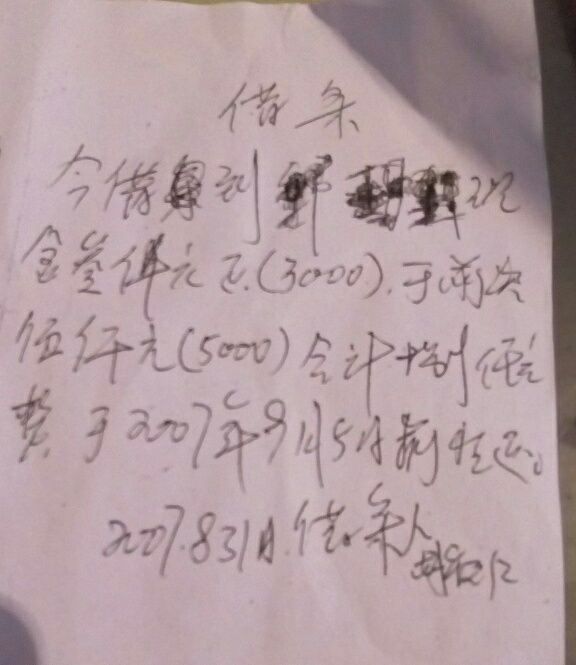 借条
今借到郭现
金叁仟元正(3000).于前次
伍仟元(5000)合计捌仟元
整于2007年9月5日前归还。
2007.8.31日.借条人